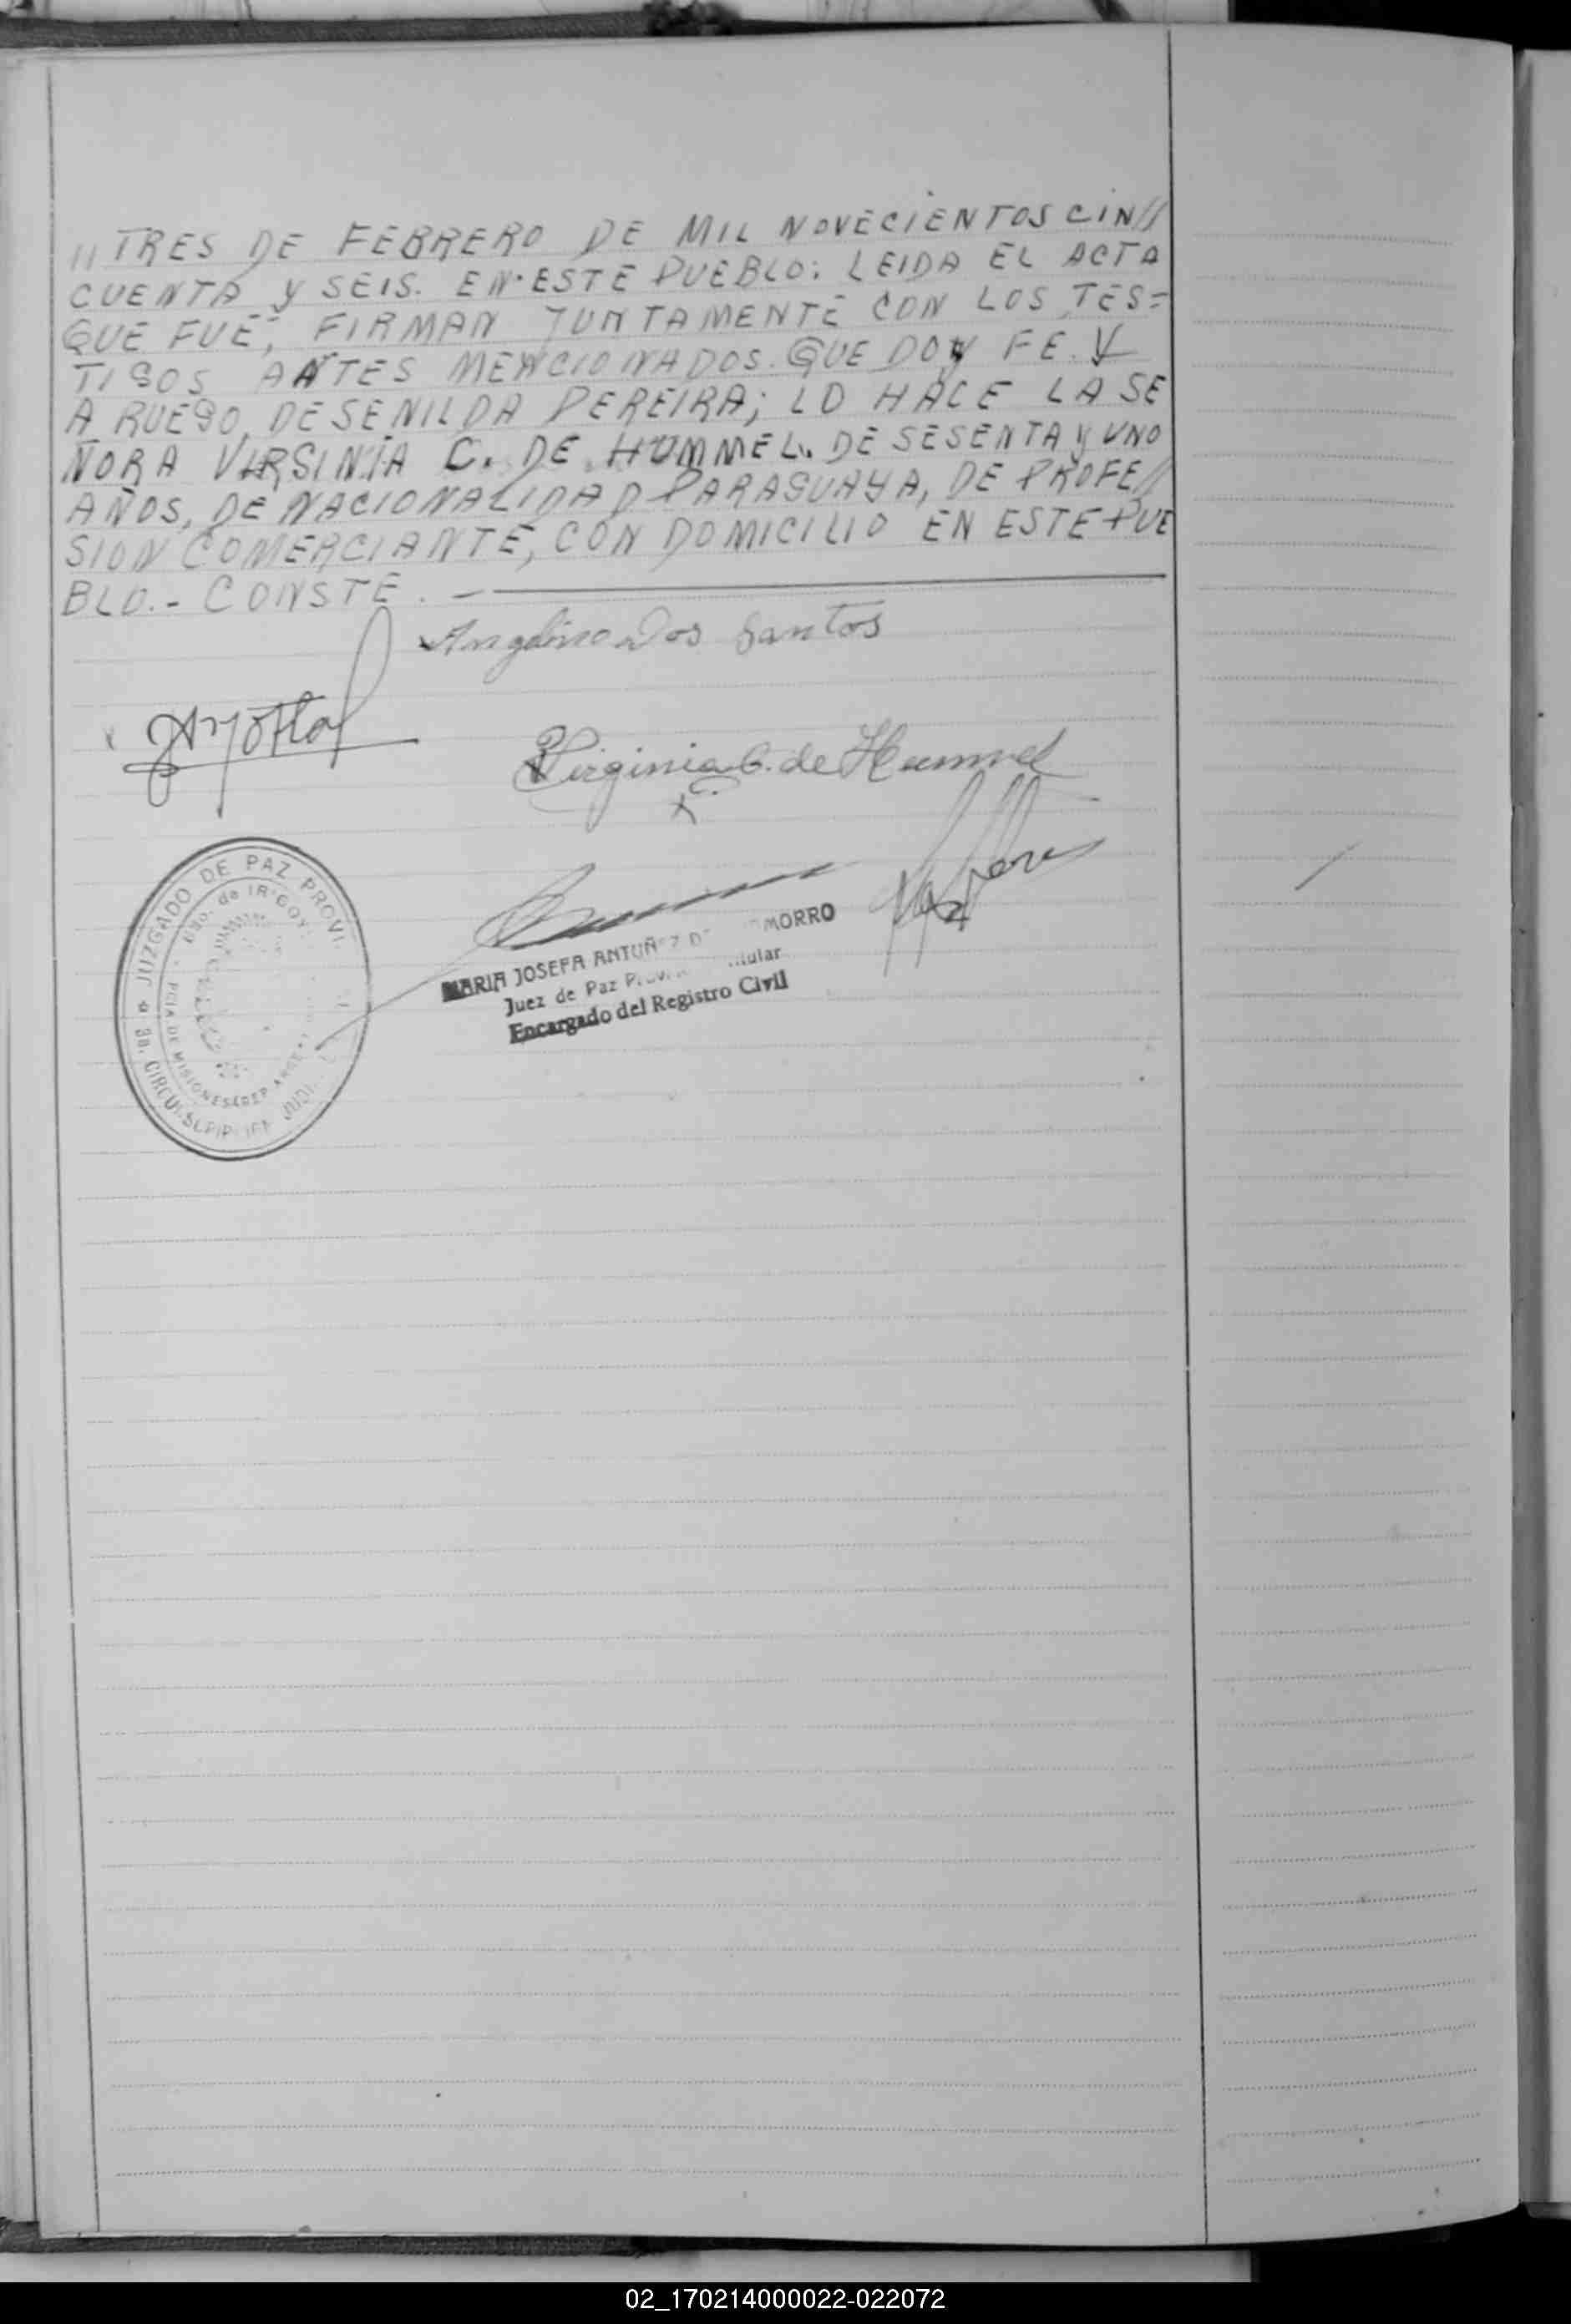 // TRES DE FEBRERO DE MIL NOVECIENTOS CIN//
CUENTA y SEIS. EN ESTE PUEBLO: LEIDA EL ACTA
QUE FUE, FIRMAN JUNTAMENTE CON LOS TES=
TIGOS ANTES MENCIONADOS. QUE DOY FE. Y
A RUEGO DE SENILDA PEREIRA; LO HACE LA SE
ÑORA VIRGINIA C. DE HUMMEL. DE SESENTA y UNO
AÑOS, DE NACIONALIDAD PARAGUAYA, DE PROFE//
SION COMERCIANTE, CON DOMICILIO EN ESTE PUE
BLO.- CONSTE. —
Angelino Dos Santos
Virginia C. de Hummel
JUZGADO DE PAZ PROVI
Bdo. de IRIGOY
PCIA DE MISIONES
3a. CIRCUNSCRIPCION JUDI
MARIA JOSEFA ANTUÑEZ D MORRO
Juez de Paz
Encargado del Registro Civil
02_170214000022-022072